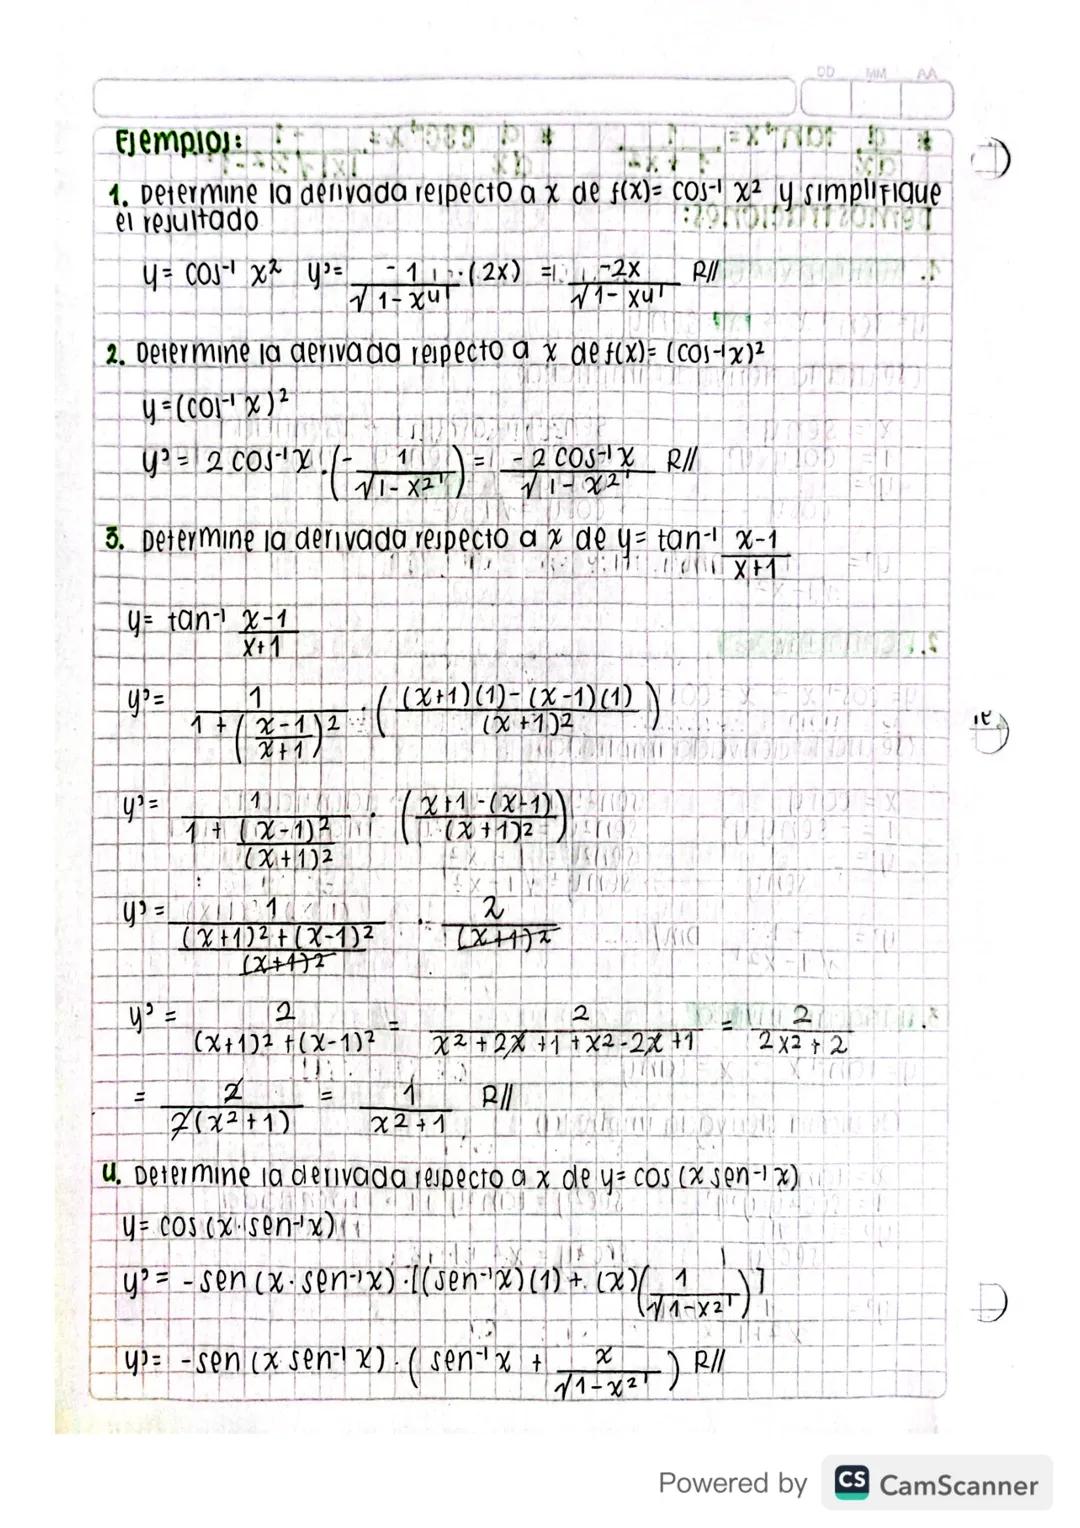 DD MM AA
Ejemplos:
1. Determine la derivada respecto a x de f(x)= cos⁻¹ x² y simplifique
el resultado
y= cos⁻¹ x² y'= -1/√(1-x⁴) · (2x) = -2x/√(1-x⁴) R//
2. Determine la derivada respecto a x de f(x)= (cos⁻¹x)²
y=(cos⁻¹ x)²
y'= 2 cos⁻¹x · (- 1/√(1-x²)) = -2 cos⁻¹x/√(1-x²) R//
3. Determine la derivada respecto a x de y= tan⁻¹ (x-1)/(x+1)
y= tan⁻¹ (x-1)/(x+1)
y'= 1/(1+((x-1)/(x+1))²) · (((x+1)(1)-(x-1)(1))/(x+1)²)
y'= 1/(1+(x-1)²/(x+1)²) · ((x+1-(x-1))/(x+1)²)
y'= 1/(((x+1)²+(x-1)²)/(x+1)²) · 2/(x+1)²
y'= 2/((x+1)²+(x-1)²) = 2/(x²+2x+1+x²-2x+1) = 2/(2x²+2)
= 2/(2(x²+1)) = 1/(x²+1) R//
4. Determine la derivada respecto a x de y= cos (x sen⁻¹ x)
y= cos (x·sen⁻¹x)
y'= -sen (x·sen⁻¹x)·[(sen⁻¹x)(1)+(x)(1/√(1-x²))]
y'= -sen (x sen⁻¹ x)·(sen⁻¹x + x/√(1-x²)) R//
Powered by CS CamScanner